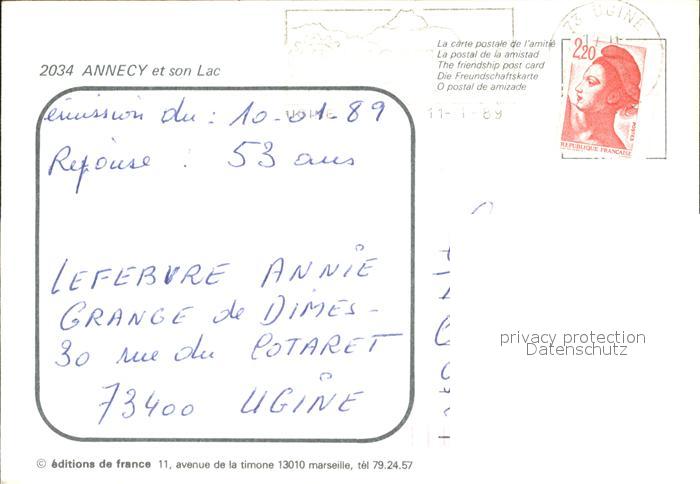 73 UGINE
La carte postale de l'amitié
La postal de la amistad
The friendship post card
Die Freundschaftskarte
O postal de amizade
2,20
POSTES
REPUBLIQUE FRANÇAISE
2034 ANNECY et son Lac
UGINE 11-1-89
émission du : 10-01-89
Réponse : 53 ans
LEFEBVRE ANNIE
GRANGE de DIMES-
30 rue du POTARET
73400 UGINE
privacy protection
Datenschutz
© éditions de france 11, avenue de la timone 13010 marseille, tél 79.24.57